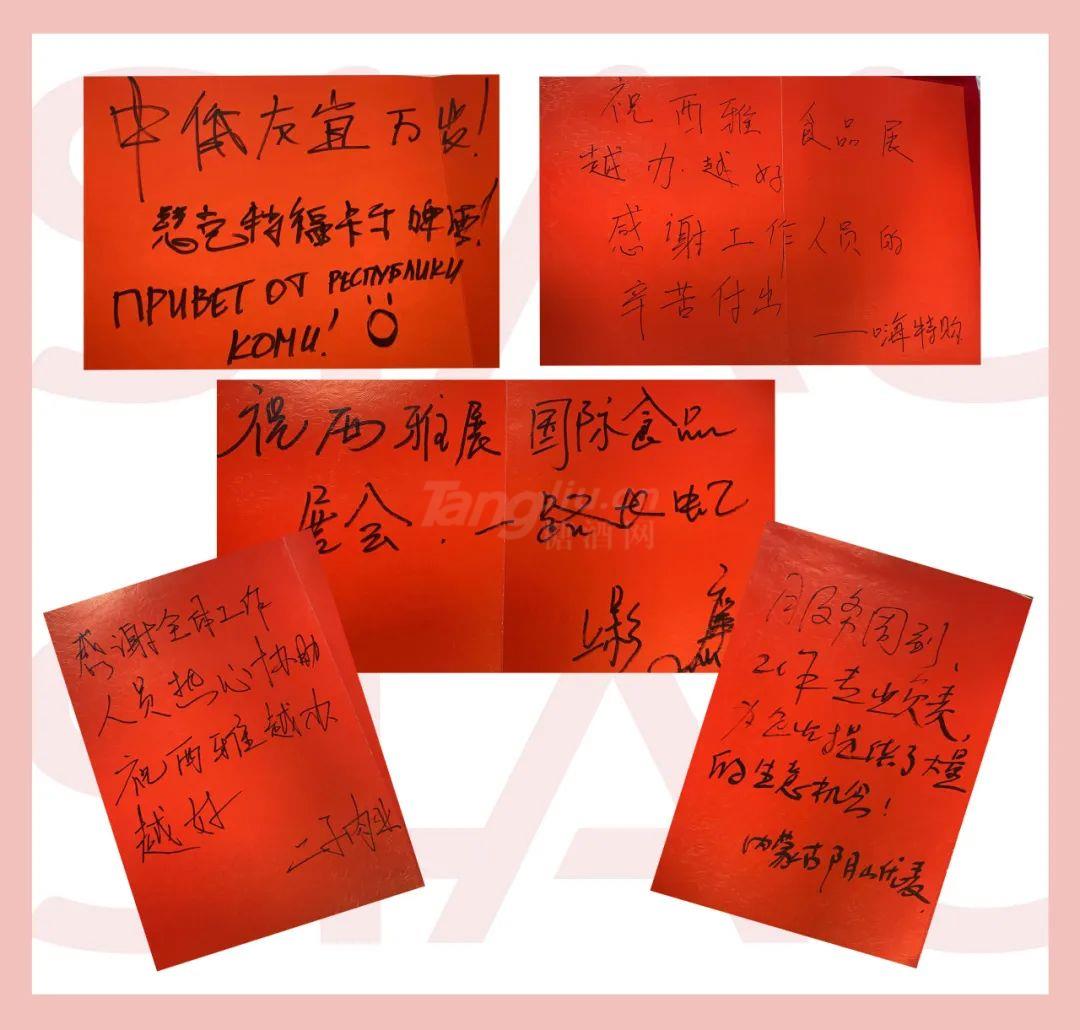 中俄友宜万岁!
克特福卡牙啤酒!
ПРИВЕТ ОТ РЕСПУБЛИКИ
КОМИ!
祝西雅 食品展
越办.越好
感谢工作人员的
辛苦付出
——嗨特购
祝西雅展国际食品
展会.一路长虹
Tangjiu.cn
糖酒网
感谢全体工作
人员热心协助
祝西雅越办
越好
二子肉业
服务周到、
为企业提供了大量
的生意机会!
内蒙古阴山优麦